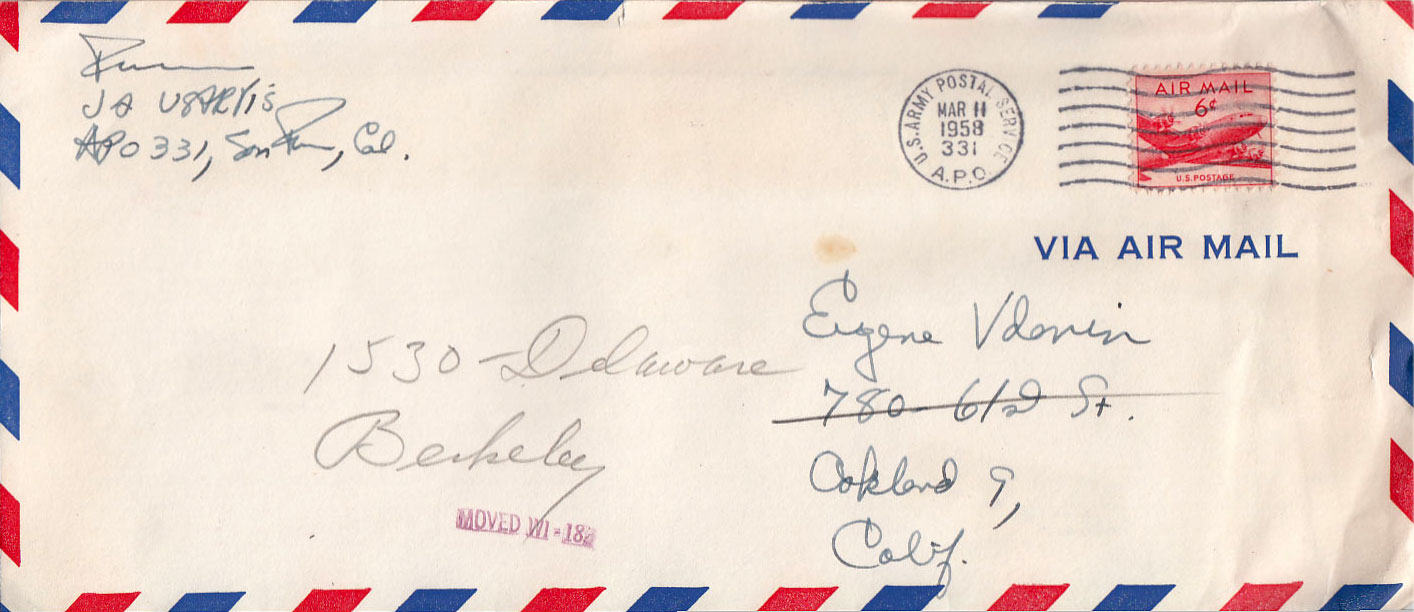 JA USARYIS
APO 331, San Fran, Cal.
U.S. ARMY POSTAL SERVICE
MAR 11
1958
331
A.P.O.
AIR MAIL
6¢
U.S. POSTAGE
VIA AIR MAIL
Eugene
780 - 61st St.
Oakland 9,
Calif.
1530 - Delaware
Berkeley
MOVED